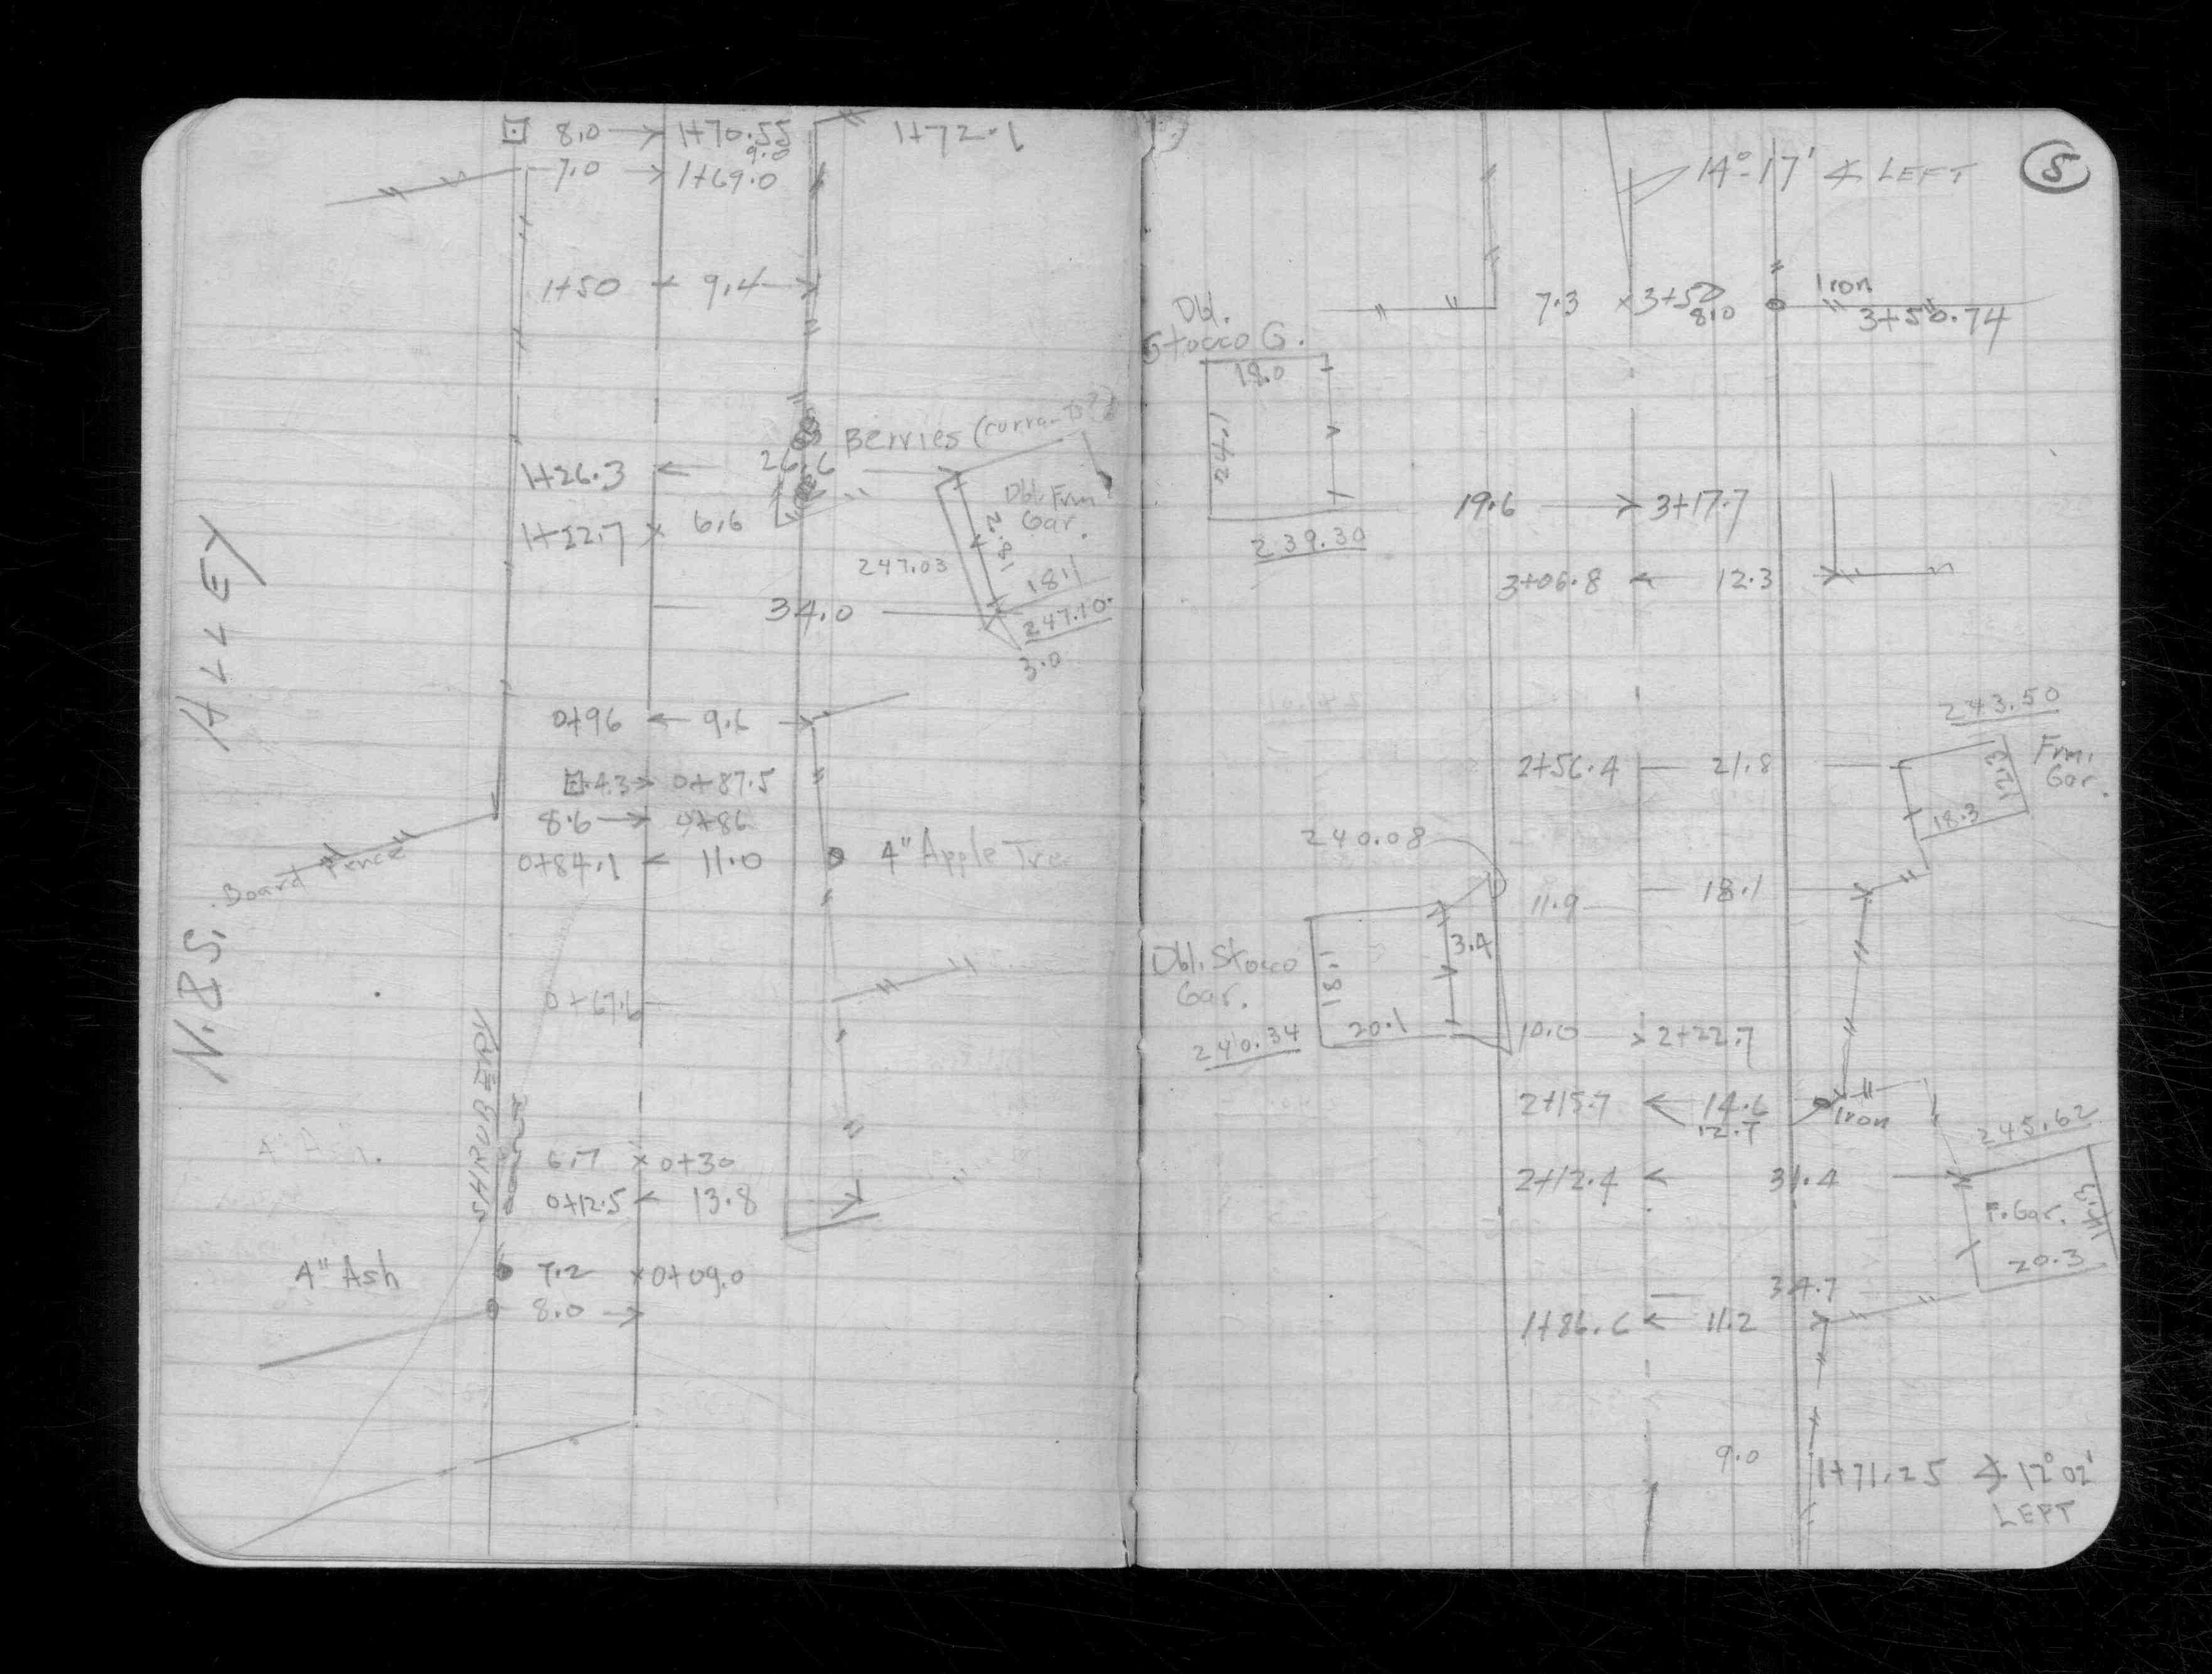 8.0 → 1+70.55
9.0
1+72.1
7.0 → 1+69.0
1+50 9.4
Berries (currants?)
1+26.3 26.6
Dbl. Frm.
Gar.
6.6
18.2
247.03
18.1
34.0
247.10
3.0
0+96 9.6
4.3 0+87.5
8.6 → 0+86
0+84.1 11.0
4" Apple Tree
Board Fence
N.&S. ALLEY
0+67.6
SHRUBERRY
4" Ash.
6.7 × 0+30
0+12.5 13.8
4" Ash
7.2 × 0+09.0
8.0 →
5
14°-17' ∡ LEFT
Iron
7.3 × 3+50
8.0
3+50.74
Dbl.
Stucco G.
18.0
24.1
19.6 → 3+17.7
239.30
3+06.8 12.3
243.50
2+56.4 21.8
Frm.
Gar.
17.3
18.3
240.08
11.9 18.1
3.4
Dbl. Stucco
Gar.
18.1
20.1
240.34
10.0 2+22.7
2+15.7 14.6
12.7
Iron
245.62
2+12.4 31.4
F. Gar.
20.3
34.7
1+86.6 11.2
9.0
1+71.25 ∡ 12°02'
LEFT